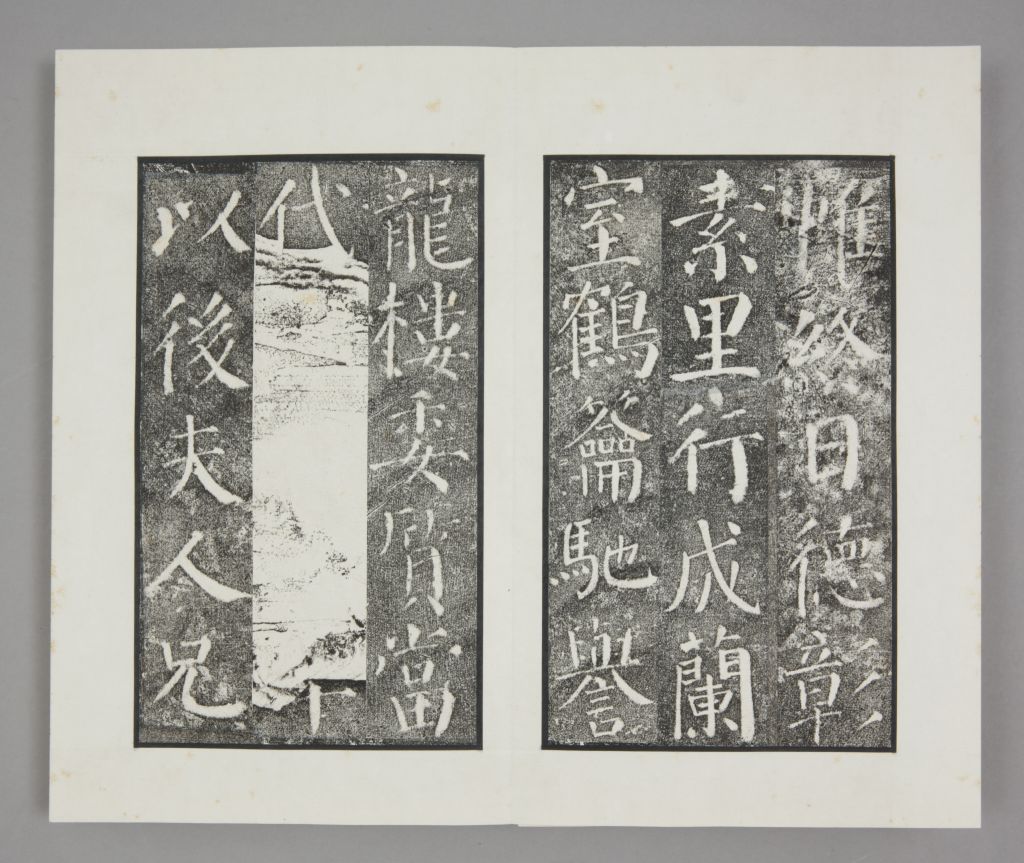 帷終日德彰
素里行成蘭
室鶴籥馳譽
龍樓委質當
代
以後夫人兄